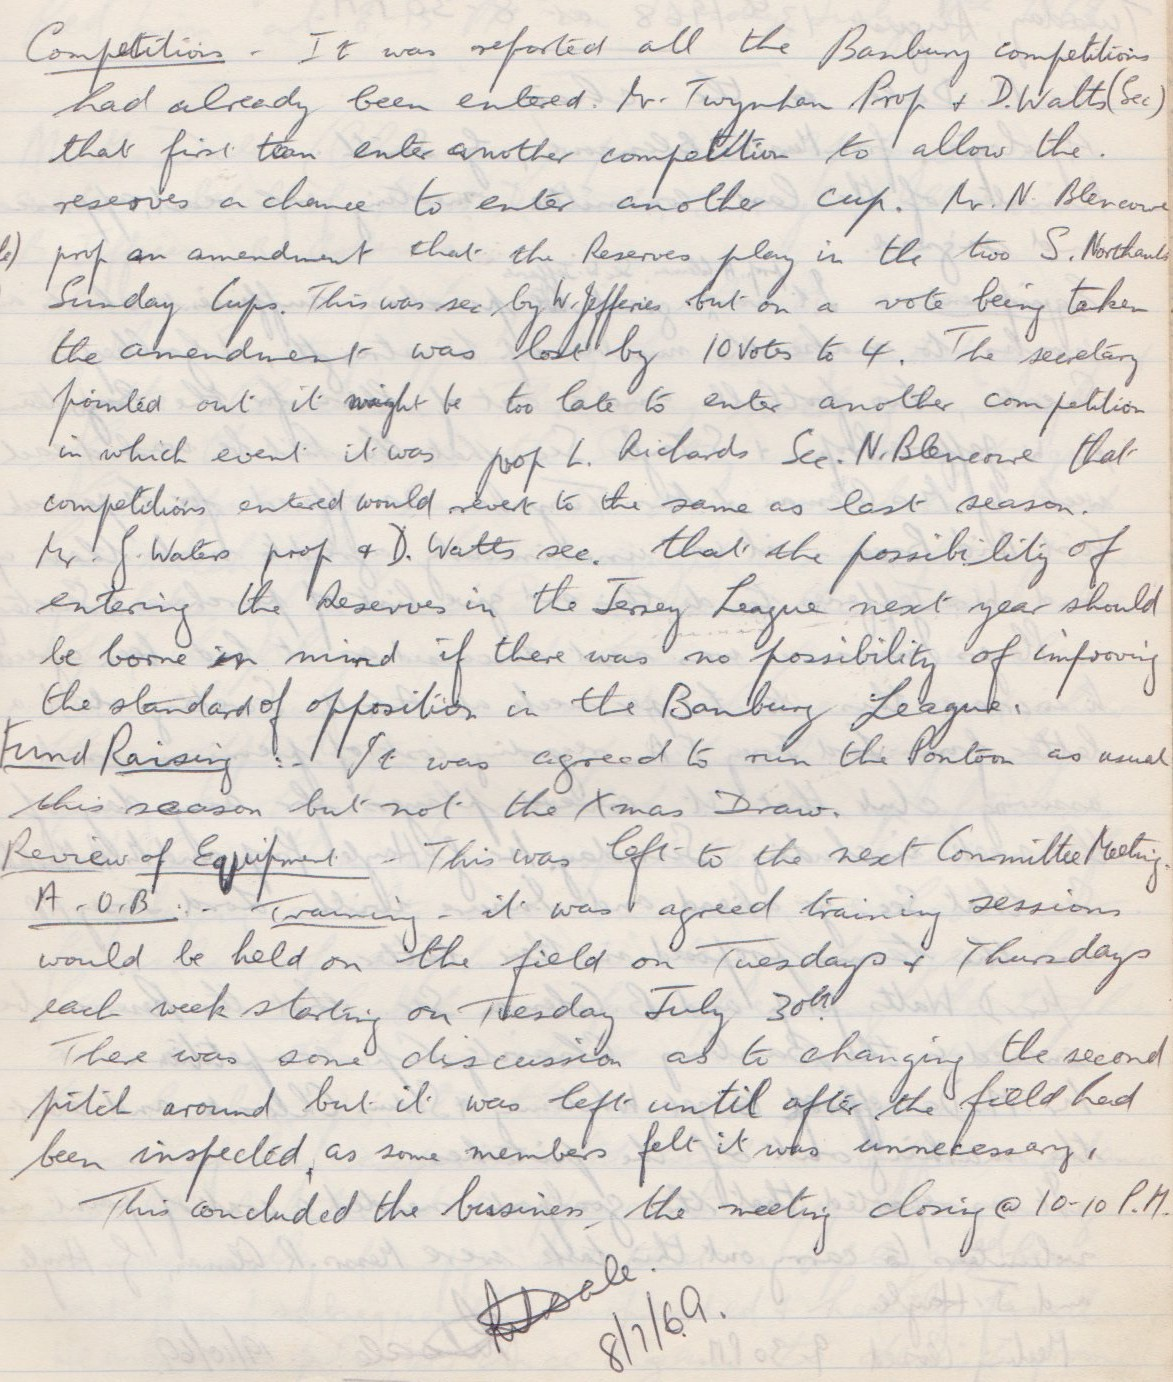 Competitions - It was reported all the Banbury competitions
had already been entered. Mr. Twynham Prop & D. Watts (Sec)
that first team enter another competition to allow the.
reserves a chance to enter another cup. Mr. N. Blencowe
prop an amendment that the Reserves play in the two S. Northants
Sunday Cups. This was sec by W. Jefferies but on a vote being taken
the amendment was lost by 10 votes to 4. The secretary
pointed out it might be too late to enter another competition
in which event it was prop L. Richards Sec. N. Blencowe that
competitions entered would revert to the same as last season.
Mr. J. Waters prop & D. Watts sec. that the possibility of
entering the Reserves in the Jersey League next year should
be borne in mind if there was no possibility of improving
the standard of opposition in the Banbury League.
Fund Raising :- It was agreed to run the Pontoon as usual
this season but not the Xmas Draw.
Review of Equipment - This was left to the next Committee Meeting.
A.O.B :- Training - it was agreed training sessions
would be held on the field on Tuesdays & Thursdays
each week starting on Tuesday July 30th
There was some discussion as to changing the second
pitch around but it was left until after the field had
been inspected, as some members felt it was unnecessary.
This concluded the business, the meeting closing @ 10-10 P.M.
8/7/69.